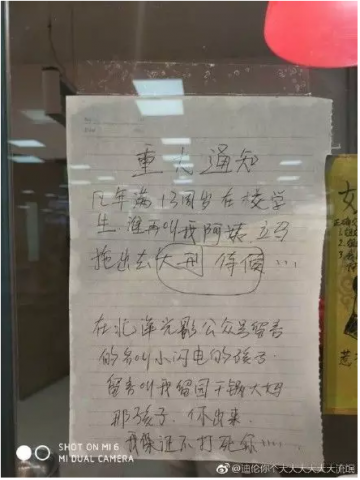 重大通知
凡年满13周岁在校学
生.谁再叫我阿姨.立马
拖出去大刑侍候...
在北洋光影公众号留言
的名叫小闪电的孩子.
留言叫我留园干锅大妈
那孩子.你出来.
我保证不打死你......
女
SHOT ON MI 6
MI DUAL CAMERA
@迪伦你个大大大大大大流氓